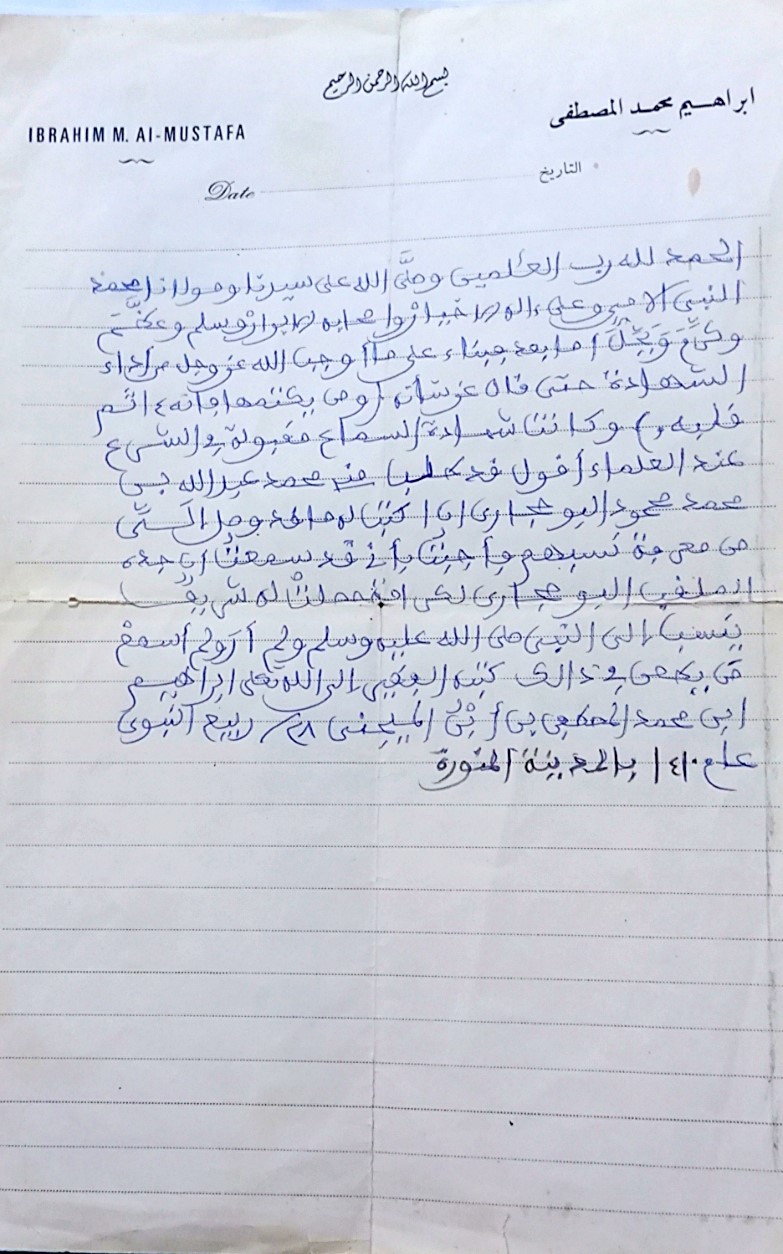 بسم الله الرحمن الرحيم
ابراهيم محمد المصطفى
IBRAHIM M. Al-MUSTAFA
التاريخ
Date
الحمد لله رب العلمين وصلَّى الله على سيدنا ومولانا محمد
النبي الامي وعلى ءاله الاخيار واصحابه الابرار وسلم وعظَّم
وكرَّم وبَجَّل أما بعد فبناء على ما أوجب الله عز وجل من أداء
الشهادة حتى قال عز شأنه (ومن يكتمها فإنه ءاثم
قلبه) وكانت شهادة السماع مقبولة في الشرع
عند العلماء أقول قد طلب مني محمد عبد الله بن
محمد محمود البوحجاري أن أكتب له ما قد وصل إليَّ
من معرفة نسبهم فأجبتُ بأني قد سمعتُ أن جده
الملقب البوحجاري لكن أمه حملتْ له شريفًا
ينتسب إلى النبي صلى الله عليه وسلم ولم أزل أسمع
من يطعن في ذالك كتبه الفقير إلى الله تعلى إبراهيم
ابن محمد المصطفى بن ٢٨/ ربيع النبوي
عام ١٤١٠ بالمدينة المنورة